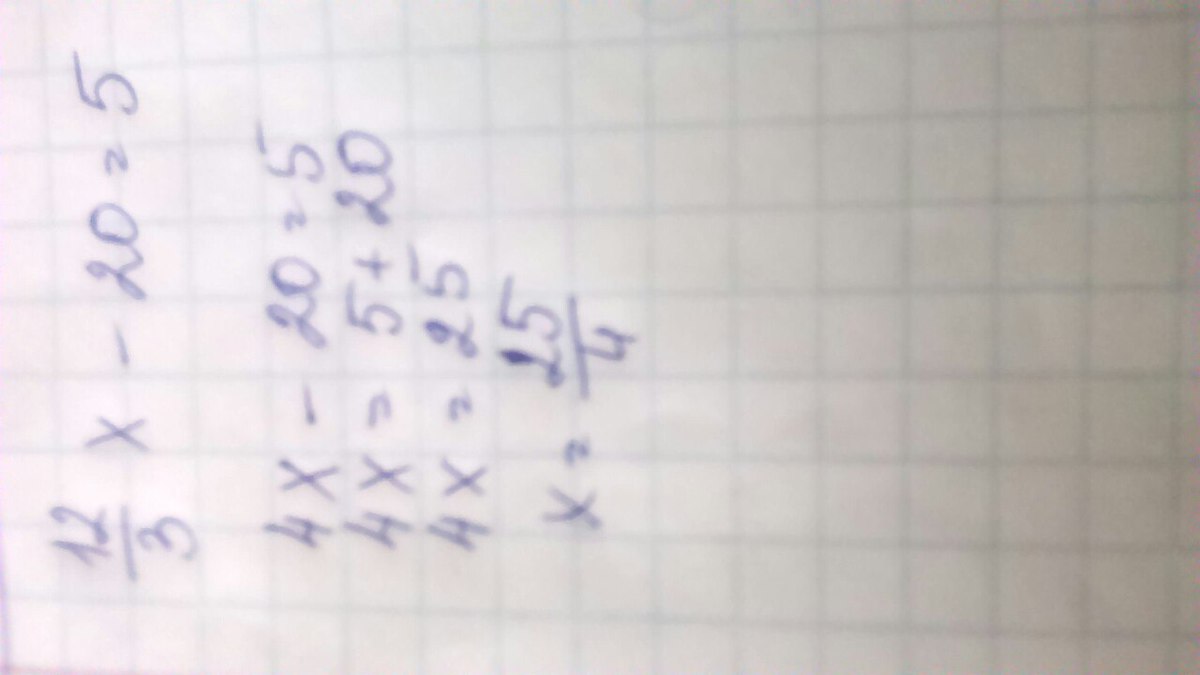 12/3 x - 20 = 5
4x - 20 = 5
4x = 5 + 20
4x = 25
x = 25/4